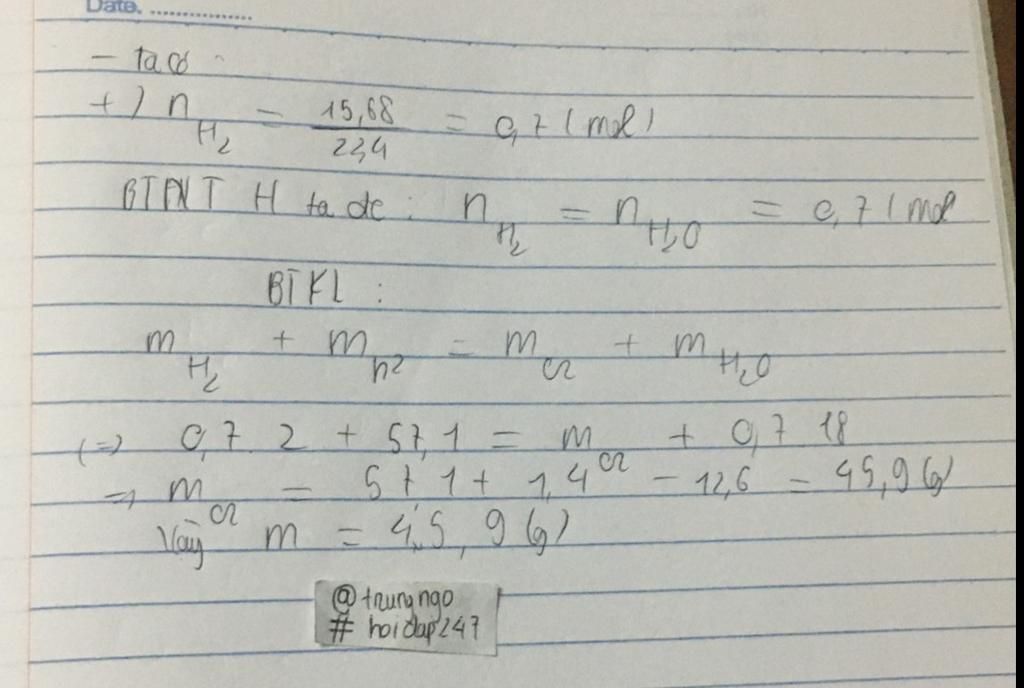 Date. ..............
- ta có
+) n H₂ = 15,68 / 22,4 = 0,7 (mol)
BTNT H ta đc : n H₂ = n H₂O = 0,7 (mol
BTKL :
m H₂ + m h² = m cr + m H₂O
(=) 0,7 2 + 57,1 = m cr + 0,7 18
=) m cr = 57,1 + 1,4 - 12,6 = 45,9 (g)
Vậy m = 45,9 (g)
@trungngo
# hoidap247